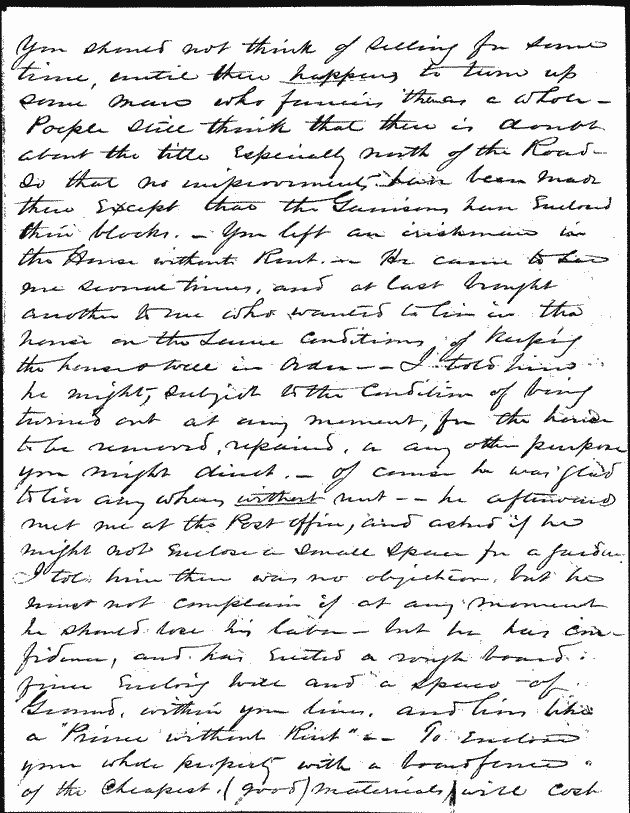 You should not think of selling for some
time, until there happens to turn up
some man who fancies them as a whole –
People still think that there is doubt
about the title Especially north of the Road –
So that no improvements have been made
there Except that the Garrisons have Enclosed
their blocks. – You left an irishman in
the House without Rent. – He came to see
me several times, and at last brought
another to me who wanted to live in the
house on the same Conditions of Keeping
the house & well in order – – I told him
he might, subject to the Condition of being
turned out at any moment, for the house
to be removed, repaired, or any other purpose
you might direct. – of course he was glad
to live any where without rent – – he afterward
met me at the Post office, and asked if he
might not Enclose a small space for a garden
I told him there was no objection, but he
must not complain if at any moment
he should lose his labor – but he has con–
fidence, and has Erected a rough board
fence Enclosing well and a space of
Ground, within your lines, and lives like
a "Prince without Rent" – – To Enclose
your whole property with a board fence
of the Cheapest (good) materials, will cost